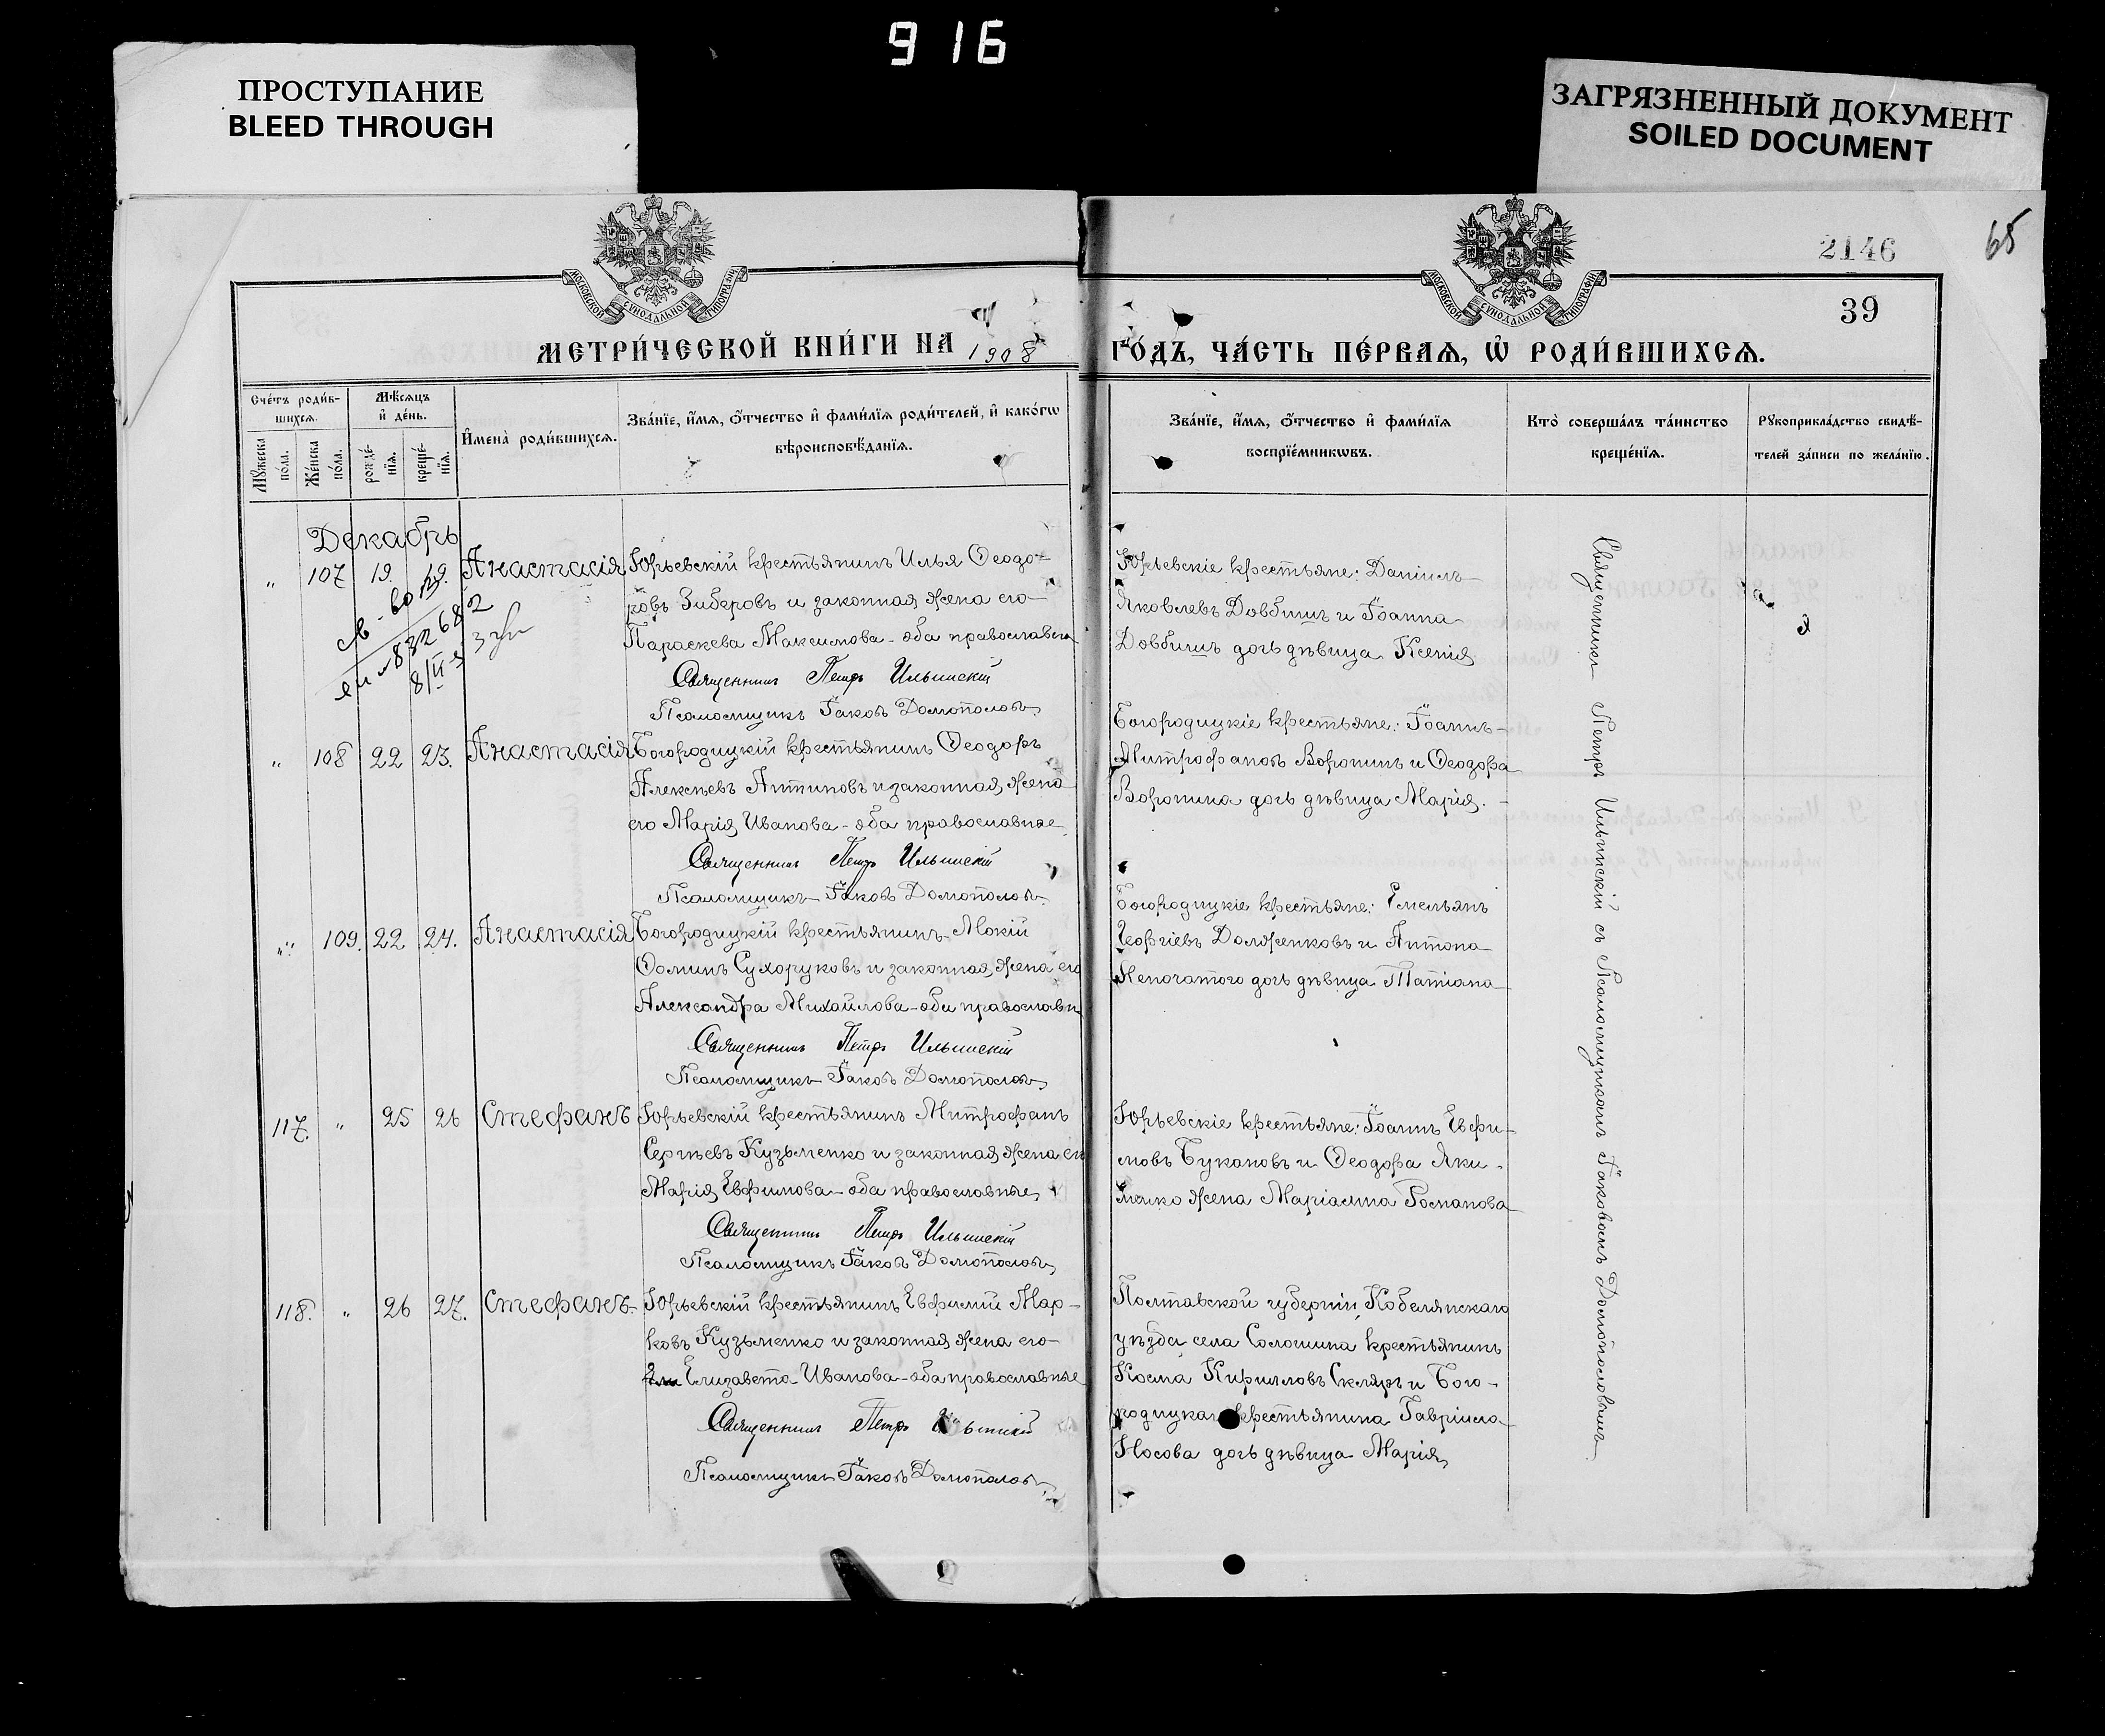 916
ПРОСТУПАНИЕ
BLEED THROUGH
ЗАГРЯЗНЕННЫЙ ДОКУМЕНТ
SOILED DOCUMENT
МОСКОВСКОЙ СУНОДАЛЬНОЙ ТИПОГРАФІИ
МОСКОВСКОЙ СУНОДАЛЬНОЙ ТИПОГРАФІИ
2146
65
39
МЕТРИ́ЧЕСКОЙ КНИ́ГИ НА 1908 ГО́ДЪ, ЧА́СТЬ ПЕ́РВАѦ, Ѡ РОДИ́ВШИХСѦ.
Сче́тъ роди́в-
шихсѧ.
Мꙋжеска
по́ла.
Же́нска
по́ла.
Мѣ́сѧцъ
и҆ де́нь.
рожде́-
нїѧ.
креще́-
нїѧ.
И҆мена̀ роди́вшихсѧ.
Зва́нїе, и҆́мѧ, ѻ҆́тчество и҆ фами́лїѧ роди́телей, и҆ како́гѡ
вѣроисповѣ́данїѧ.
Зва́нїе, и҆́мѧ, ѻ҆́тчество и҆ фами́лїѧ
воспрїе́мникѡвъ.
Кто̀ соверша́лъ та́инство
креще́нїѧ.
Рꙋкоприкла́дство свидѣ́-
телей за́писи по жела́нїю.
Декабрь
„ 107 19. 19. Анастасія
Юрьевскій крестьянинъ Илья Ѳеодо-
ровъ Зиберовъ и законная жена его
Параскева Максимова - оба православн
Священникъ Петръ Ильинскій
Псаломщикъ Іаковъ Домополов
Юрьевскіе крестьяне: Даніилъ
Яковлевъ Довбишъ и Іоанна
Довбишъ дочь дѣвица Ксенія
св-во
8/II
„ 108 22 23. Анастасія
Богородицкій крестьянинъ Ѳеодоръ
Алексѣевъ Антиповъ и законная жена
его Марія Иванова - оба православные
Священникъ Петръ Ильинскій
Псаломщикъ Іаковъ Домополов
Богородицкіе крестьяне: Іоаннъ
Митрофановъ Воронинъ и Ѳеодора
Воронина дочь дѣвица Марія.
„ 109. 22 24. Анастасія
Богородицкій крестьянинъ Мокій
Ѳоминъ Сухоруковъ и законная жена его
Александра Михайлова - оба православн
Священникъ Петръ Ильинскій
Псаломщикъ Іаковъ Домополов
Богородицкіе крестьяне: Емельянъ
Георгіевъ Долженковъ и Антона
Непочатого дочь дѣвица Татіана
117. „ 25 26 Стефанъ
Юрьевскій крестьянинъ Митрофанъ
Сергѣевъ Кузьменко и законная жена его
Марія Евфимова - оба православные
Священникъ Петръ Ильинскій
Псаломщикъ Іаковъ Домополов
Юрьевскіе крестьяне: Іоаннъ Евфи-
мовъ Букановъ и Ѳеодора Яки-
менко жена Маріамна Романова
118. „ 26 27. Стефанъ
Юрьевскій крестьянинъ Евфимій Мар-
ковъ Кузьменко и законная жена его
Елизавета Иванова - оба православные
Священникъ Петръ Ильинскій
Псаломщикъ Іаковъ Домополов
Полтавской губерніи, Кобелянскаго
уѣзда села Солошина крестьянинъ
Косма Кирилловъ Скляръ и Бого-
родицкаго крестьянина Гавріила
Носова дочь дѣвица Марія
Священникъ Петръ Ильинскій съ Псаломщикомъ Іаковомъ Домопословымъ